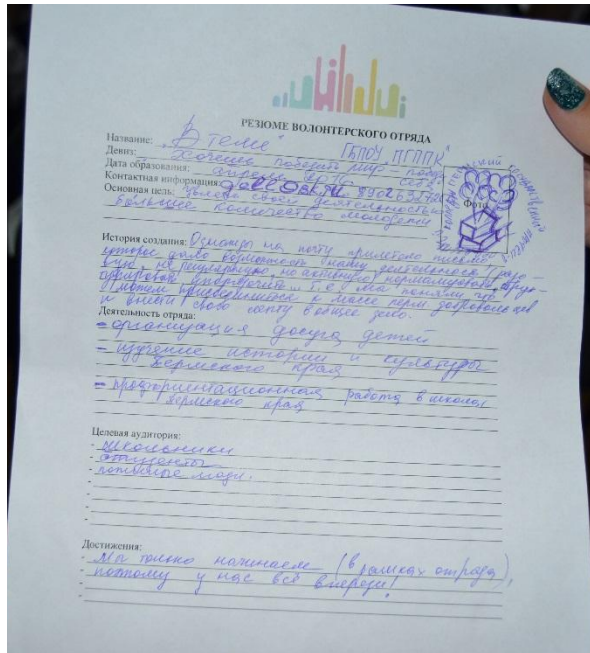 РЕЗЮМЕ ВОЛОНТЕРСКОГО ОТРЯДА
Название: "В теме" ГБПОУ "ПГППК"
Девиз: Хочешь победить мир - победи себя
Дата образования: апрель 2016
Контактная информация:
Основная цель: своей деятельностью
большее количество молодежи
Фото
История создания: Однажды на почту прилетело письмо
которое дало возможность нашу деятельность
не регулярную, но активную
Т.е. мы поняли, что
можем присоединиться к массе перм. добровольцев
и внести свою лепту в общее дело.
Деятельность отряда:
- организация досуга детей
- изучение истории и культуры
Пермского края
- профориентационная работа в школах
Пермского края
Целевая аудитория:
- школьники
- студенты
- пожилые люди.
Достижения:
- Мы только начинаем (в рамках отряда),
поэтому у нас всё впереди!